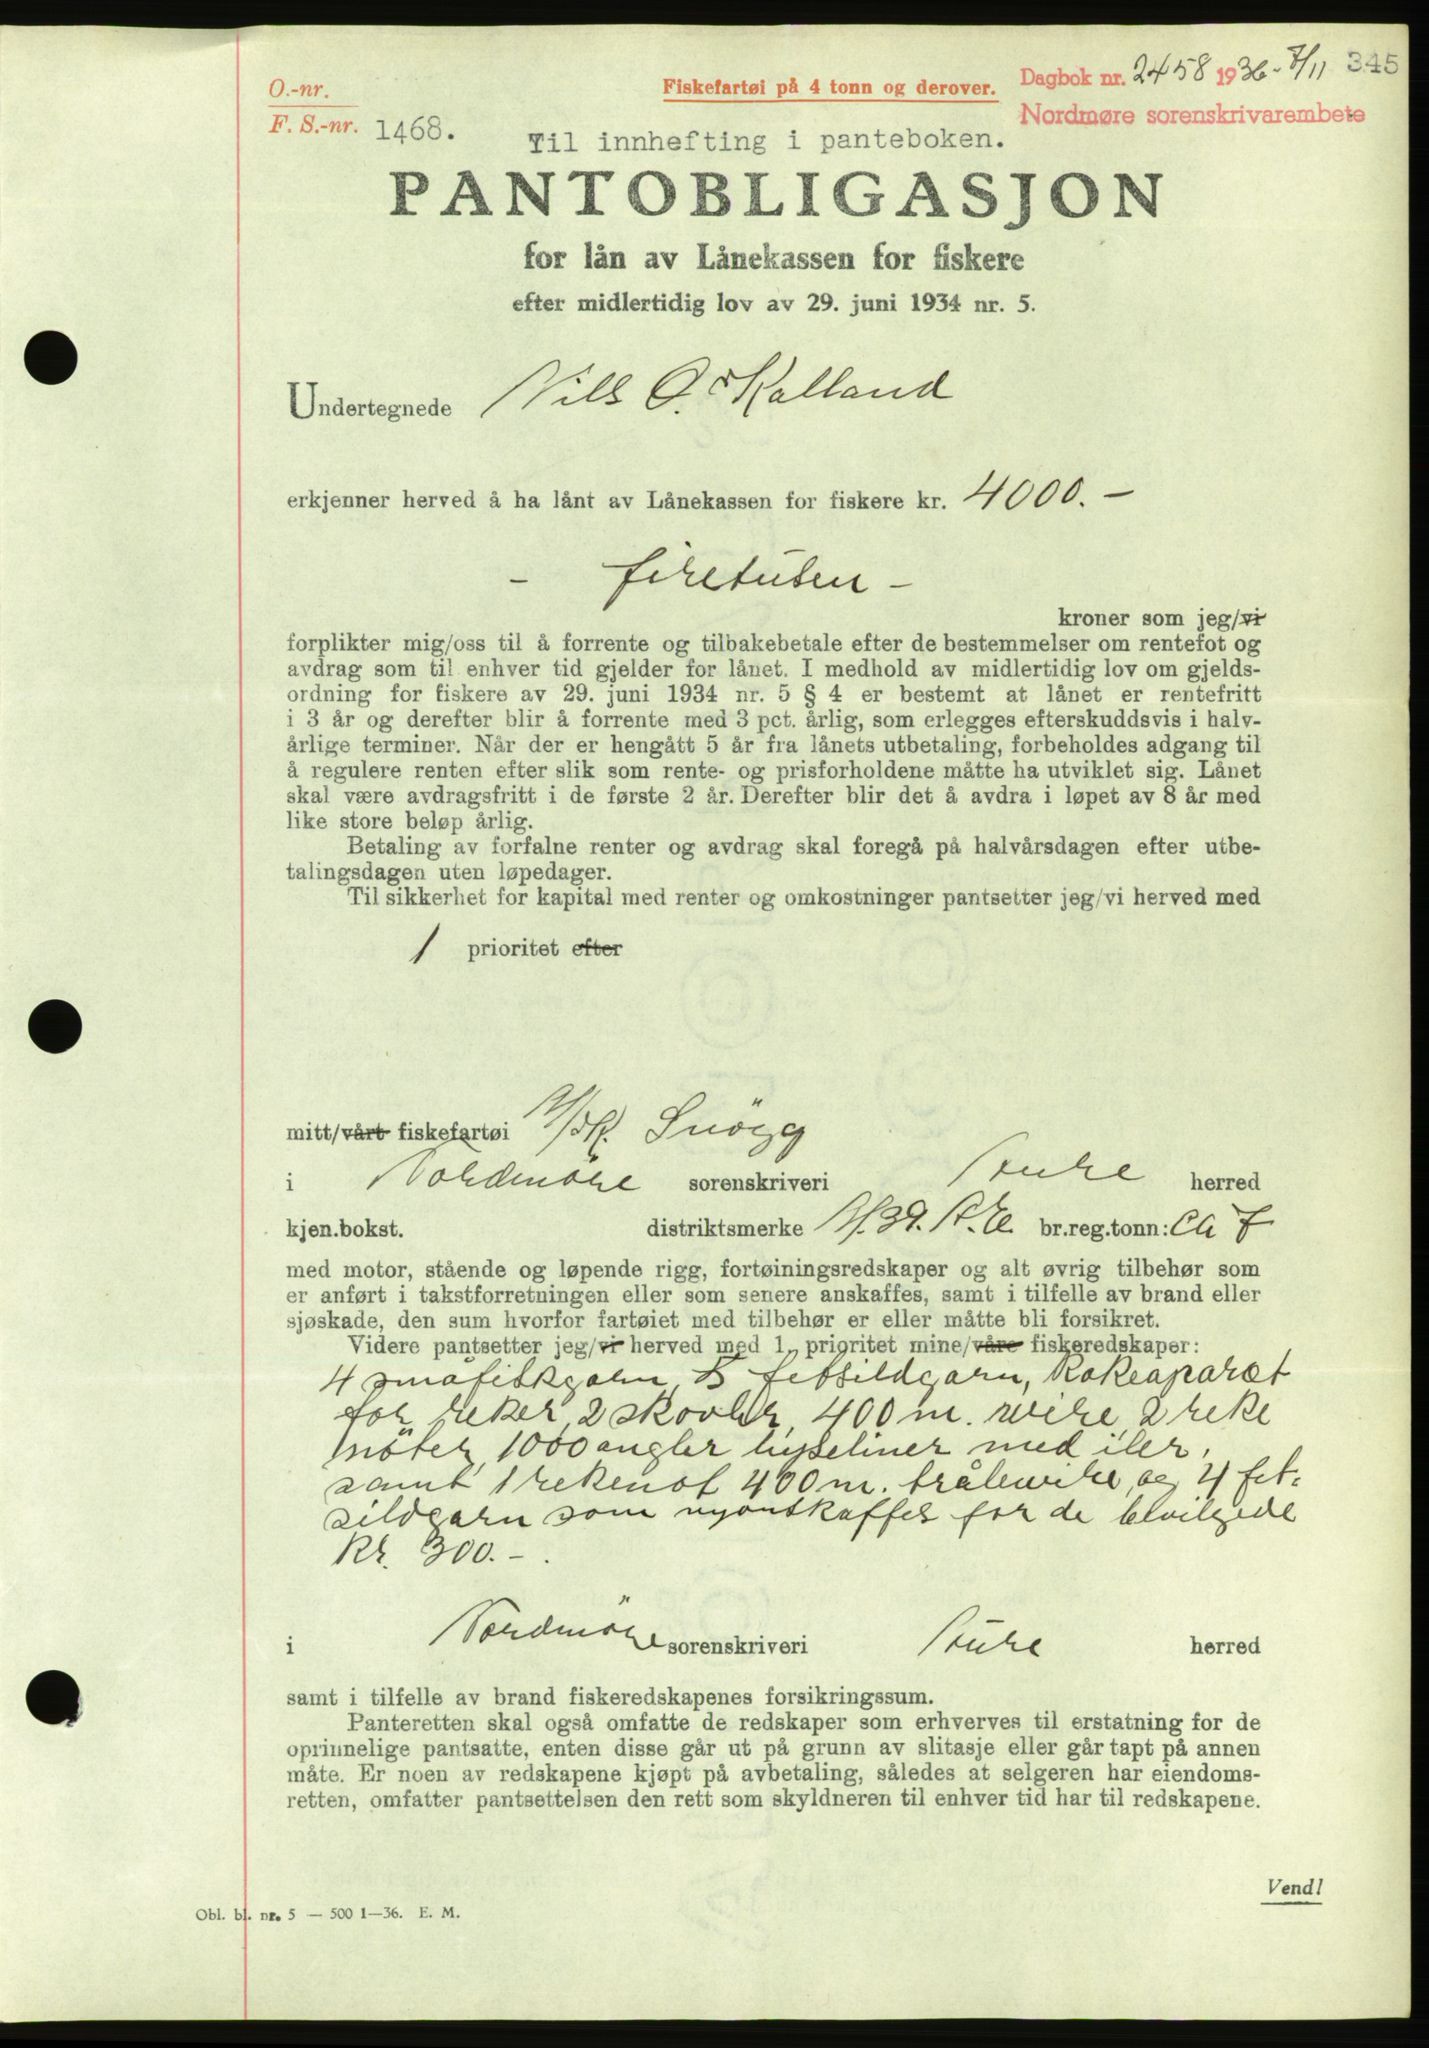 O.-nr.
F. S.-nr. 1468.
Fiskefartøi på 4 tonn og derover.
Dagbok nr. 2458 1936 - 7/11 345
Nordmøre sorenskrivarembete
Til innhefting i panteboken.
PANTOBLIGASJON
for lån av Lånekassen for fiskere
efter midlertidig lov av 29. juni 1934 nr. 5.
Undertegnede Nils O. Kalland
erkjenner herved å ha lånt av Lånekassen for fiskere kr. 4000.-
- firetusen -
kroner som jeg/vi
forplikter mig/oss til å forrente og tilbakebetale efter de bestemmelser om rentefot og
avdrag som til enhver tid gjelder for lånet. I medhold av midlertidig lov om gjelds-
ordning for fiskere av 29. juni 1934 nr. 5 § 4 er bestemt at lånet er rentefritt
i 3 år og derefter blir å forrente med 3 pct. årlig, som erlegges efterskuddsvis i halv-
årlige terminer. Når der er hengått 5 år fra lånets utbetaling, forbeholdes adgang til
å regulere renten efter slik som rente- og prisforholdene måtte ha utviklet sig. Lånet
skal være avdragsfritt i de første 2 år. Derefter blir det å avdra i løpet av 8 år med
like store beløp årlig.
Betaling av forfalne renter og avdrag skal foregå på halvårsdagen efter utbe-
talingsdagen uten løpedager.
Til sikkerhet for kapital med renter og omkostninger pantsetter jeg/vi herved med
1 prioritet efter
mitt/vårt fiskefartøi M/K. Snögg
i Nordmöre sorenskriveri Sture herred
kjen.bokst. distriktsmerke M.39.S.E. br.reg.tonn: ca 7
med motor, stående og løpende rigg, fortøiningsredskaper og alt øvrig tilbehør som
er anført i takstforretningen eller som senere anskaffes, samt i tilfelle av brand eller
sjøskade, den sum hvorfor fartøiet med tilbehør er eller måtte bli forsikret.
Videre pantsetter jeg/vi herved med 1. prioritet mine/våre fiskeredskaper:
4 småfiskgarn, 5 fetsildgarn, kokeaparat
for reker, 2 skovler, 400 m. wire, 2 reke
nöter, 1000 angler hyseliner med iler,
samt 1 rekenot 400 m. trålewire, og 4 fet-
sildgarn som nyanskaffes for de bevilgede
kr. 300.- .
i Nordmöre sorenskriveri Sture herred
samt i tilfelle av brand fiskeredskapenes forsikringssum.
Panteretten skal også omfatte de redskaper som erhverves til erstatning for de
oprinnelige pantsatte, enten disse går ut på grunn av slitasje eller går tapt på annen
måte. Er noen av redskapene kjøpt på avbetaling, således at selgeren har eiendoms-
retten, omfatter pantsettelsen den rett som skyldneren til enhver tid har til redskapene.
Vend!
Obl. bl. nr. 5 — 500 1—36. E. M.